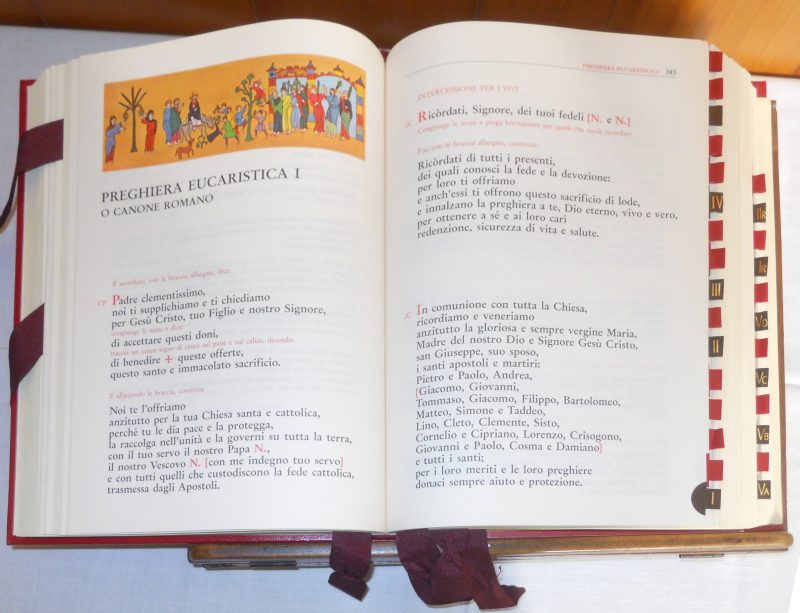 PREGHIERA EUCARISTICA I
O CANONE ROMANO
Il sacerdote, con le braccia allargate, dice:
CP Padre clementissimo,
noi ti supplichiamo e ti chiediamo
per Gesù Cristo, tuo Figlio e nostro Signore,
congiunge le mani e dice:
di accettare questi doni,
traccia un unico segno di croce sul pane e sul calice, dicendo:
di benedire ✠ queste offerte,
questo santo e immacolato sacrificio.
E allargando le braccia, continua:
Noi te l'offriamo
anzitutto per la tua Chiesa santa e cattolica,
perché tu le dia pace e la protegga,
la raccolga nell'unità e la governi su tutta la terra,
con il tuo servo il nostro Papa N.,
il nostro Vescovo N. [con me indegno tuo servo]
e con tutti quelli che custodiscono la fede cattolica,
trasmessa dagli Apostoli.
PREGHIERA EUCARISTICA I 383
INTERCESSIONE PER I VIVI
1C Ricòrdati, Signore, dei tuoi fedeli [N. e N.]
Congiunge le mani e prega brevemente per quelli che vuole ricordare.
Poi, con le braccia allargate, continua:
Ricòrdati di tutti i presenti,
dei quali conosci la fede e la devozione:
per loro ti offriamo
e anch'essi ti offrono questo sacrificio di lode,
e innalzano la preghiera a te, Dio eterno, vivo e vero,
per ottenere a sé e ai loro cari
redenzione, sicurezza di vita e salute.
2C In comunione con tutta la Chiesa,
ricordiamo e veneriamo
anzitutto la gloriosa e sempre vergine Maria,
Madre del nostro Dio e Signore Gesù Cristo,
san Giuseppe, suo sposo,
i santi apostoli e martiri:
Pietro e Paolo, Andrea,
[Giacomo, Giovanni,
Tommaso, Giacomo, Filippo, Bartolomeo,
Matteo, Simone e Taddeo,
Lino, Cleto, Clemente, Sisto,
Cornelio e Cipriano, Lorenzo, Crisogono,
Giovanni e Paolo, Cosma e Damiano]
e tutti i santi;
per i loro meriti e le loro preghiere
donaci sempre aiuto e protezione.
IV
III
II
I
IIR
IR
VD
VC
VB
VA